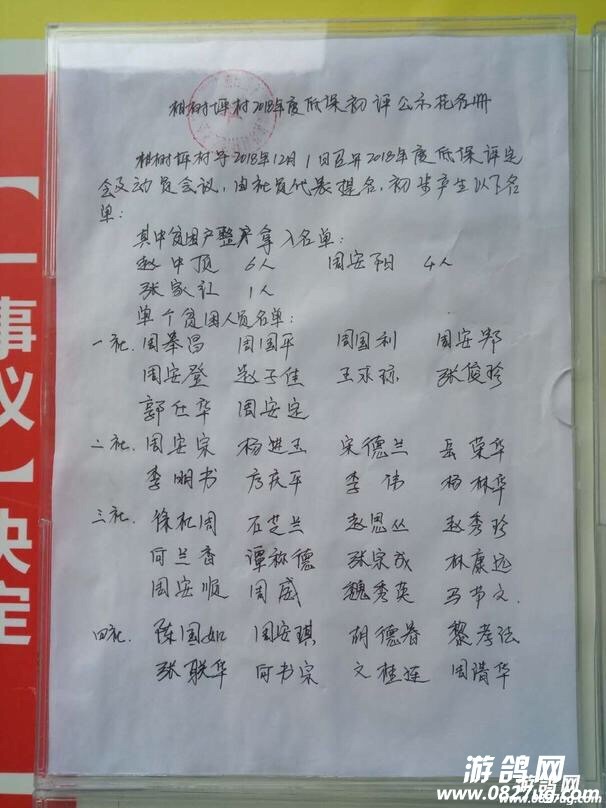 柏树坪村2018年度低保初评公示花名册
柏树坪村于2018年12月1日召开2018年度低保评定
会及动员会议，由社员代表提名，初步产生以下名
单：
其中贫困户整户拿入名单：
赵中顶 6人 周安阳 4人
张家红 1人
单个贫困人员名单：
一社. 周举昌 周国平 周国利 周安邦
周安登 赵子佳 王来琼 张俊珍
郭仕华 周安定
二社. 周安宗 杨进玉 宋德兰 岳荣华
李明书 方庆平 李伟 杨林华
三社. 徐松周 石芝兰 赵思丛 赵秀珍
何兰香 谭称德 张宗成 林康远
周安顺 周威 魏秀英 马节文.
四社. 陈国如 周安琪 胡德春 黎孝法
张联华 何书宗 文桂连 周清华
【一事议】决定
游鸽网
www.0827tg.com